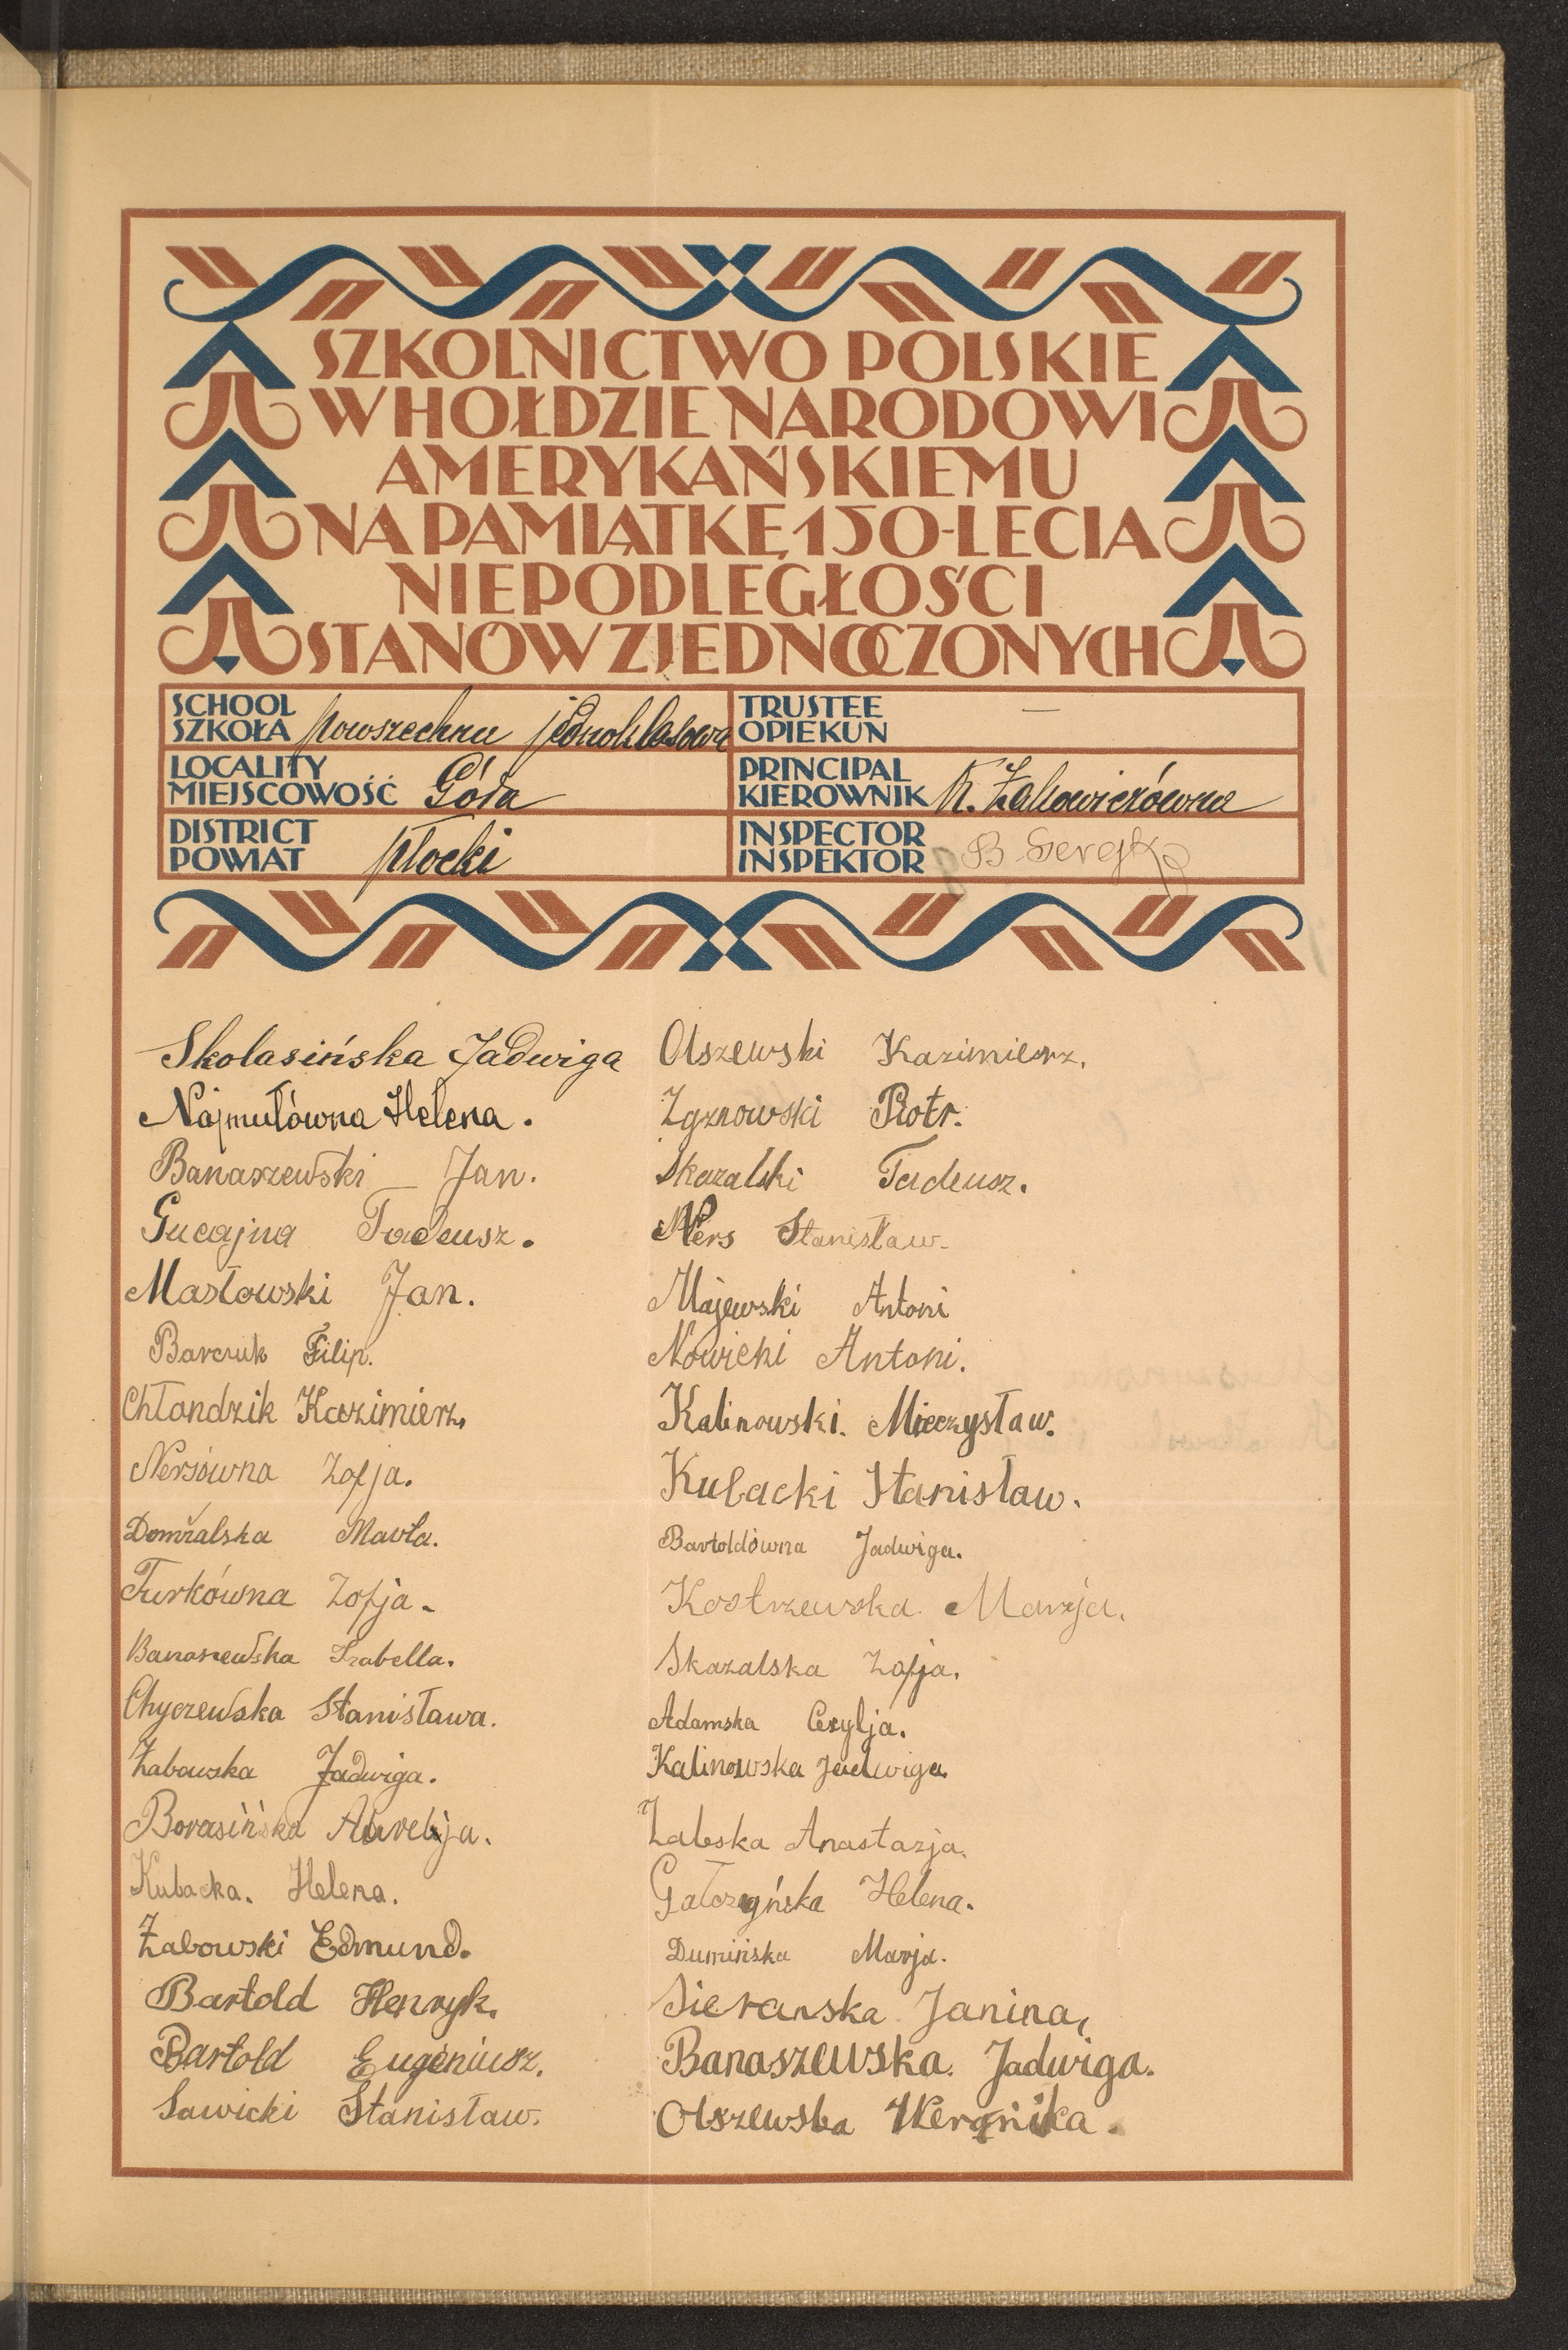 SZKOLNICTWO POLSKIE
W HOŁDZIE NARODOWI
AMERYKAŃSKIEMU
NA PAMIĄTKĘ 150-LECIA
NIEPODLEGŁOŚCI
STANÓW ZJEDNOCZONYCH
SCHOOL
SZKOŁA powszechna jednoklasowa
LOCALITY
MIEJSCOWOŚĆ Góra
DISTRICT
POWIAT płocki
TRUSTEE
OPIEKUN —
PRINCIPAL
KIEROWNIK K. Żakowiczówna
INSPECTOR
INSPEKTOR B
Skolasińska Jadwiga
Najmułówna Helena.
Banaszewski Jan.
Gucajna Tadeusz.
Masłowski Jan.
Barczuk Filip.
Chłondzik Kazimierz.
Nersówna Zofja.
Domżalska Marta.
Turkówna Zofja.
Banaszewska Izabella.
Chyczewska Stanisława.
Żabowska Jadwiga.
Borasińska Aurelja.
Kubacka. Helena.
Żabowski Edmund.
Bartold Henryk.
Bartold Eugeniusz.
Sawicki Stanisław.
Olszewski Kazimierz.
Zgznowski Piotr.
Skazalski Tadeusz.
Ners Stanisław.
Majewski Antoni
Nowicki Antoni.
Kalinowski. Mieczysław.
Kubacki Stanisław.
Bartoldówna Jadwiga.
Kostrzewska Marja.
Skazalska Zofja.
Adamska Cezylja.
Kalinowska Jadwiga.
Żabska Anastazja.
Gałczyńska Helena.
Dumińska Marja.
Sieranska Janina,
Banaszewska. Jadwiga.
Olszewska Weronika.